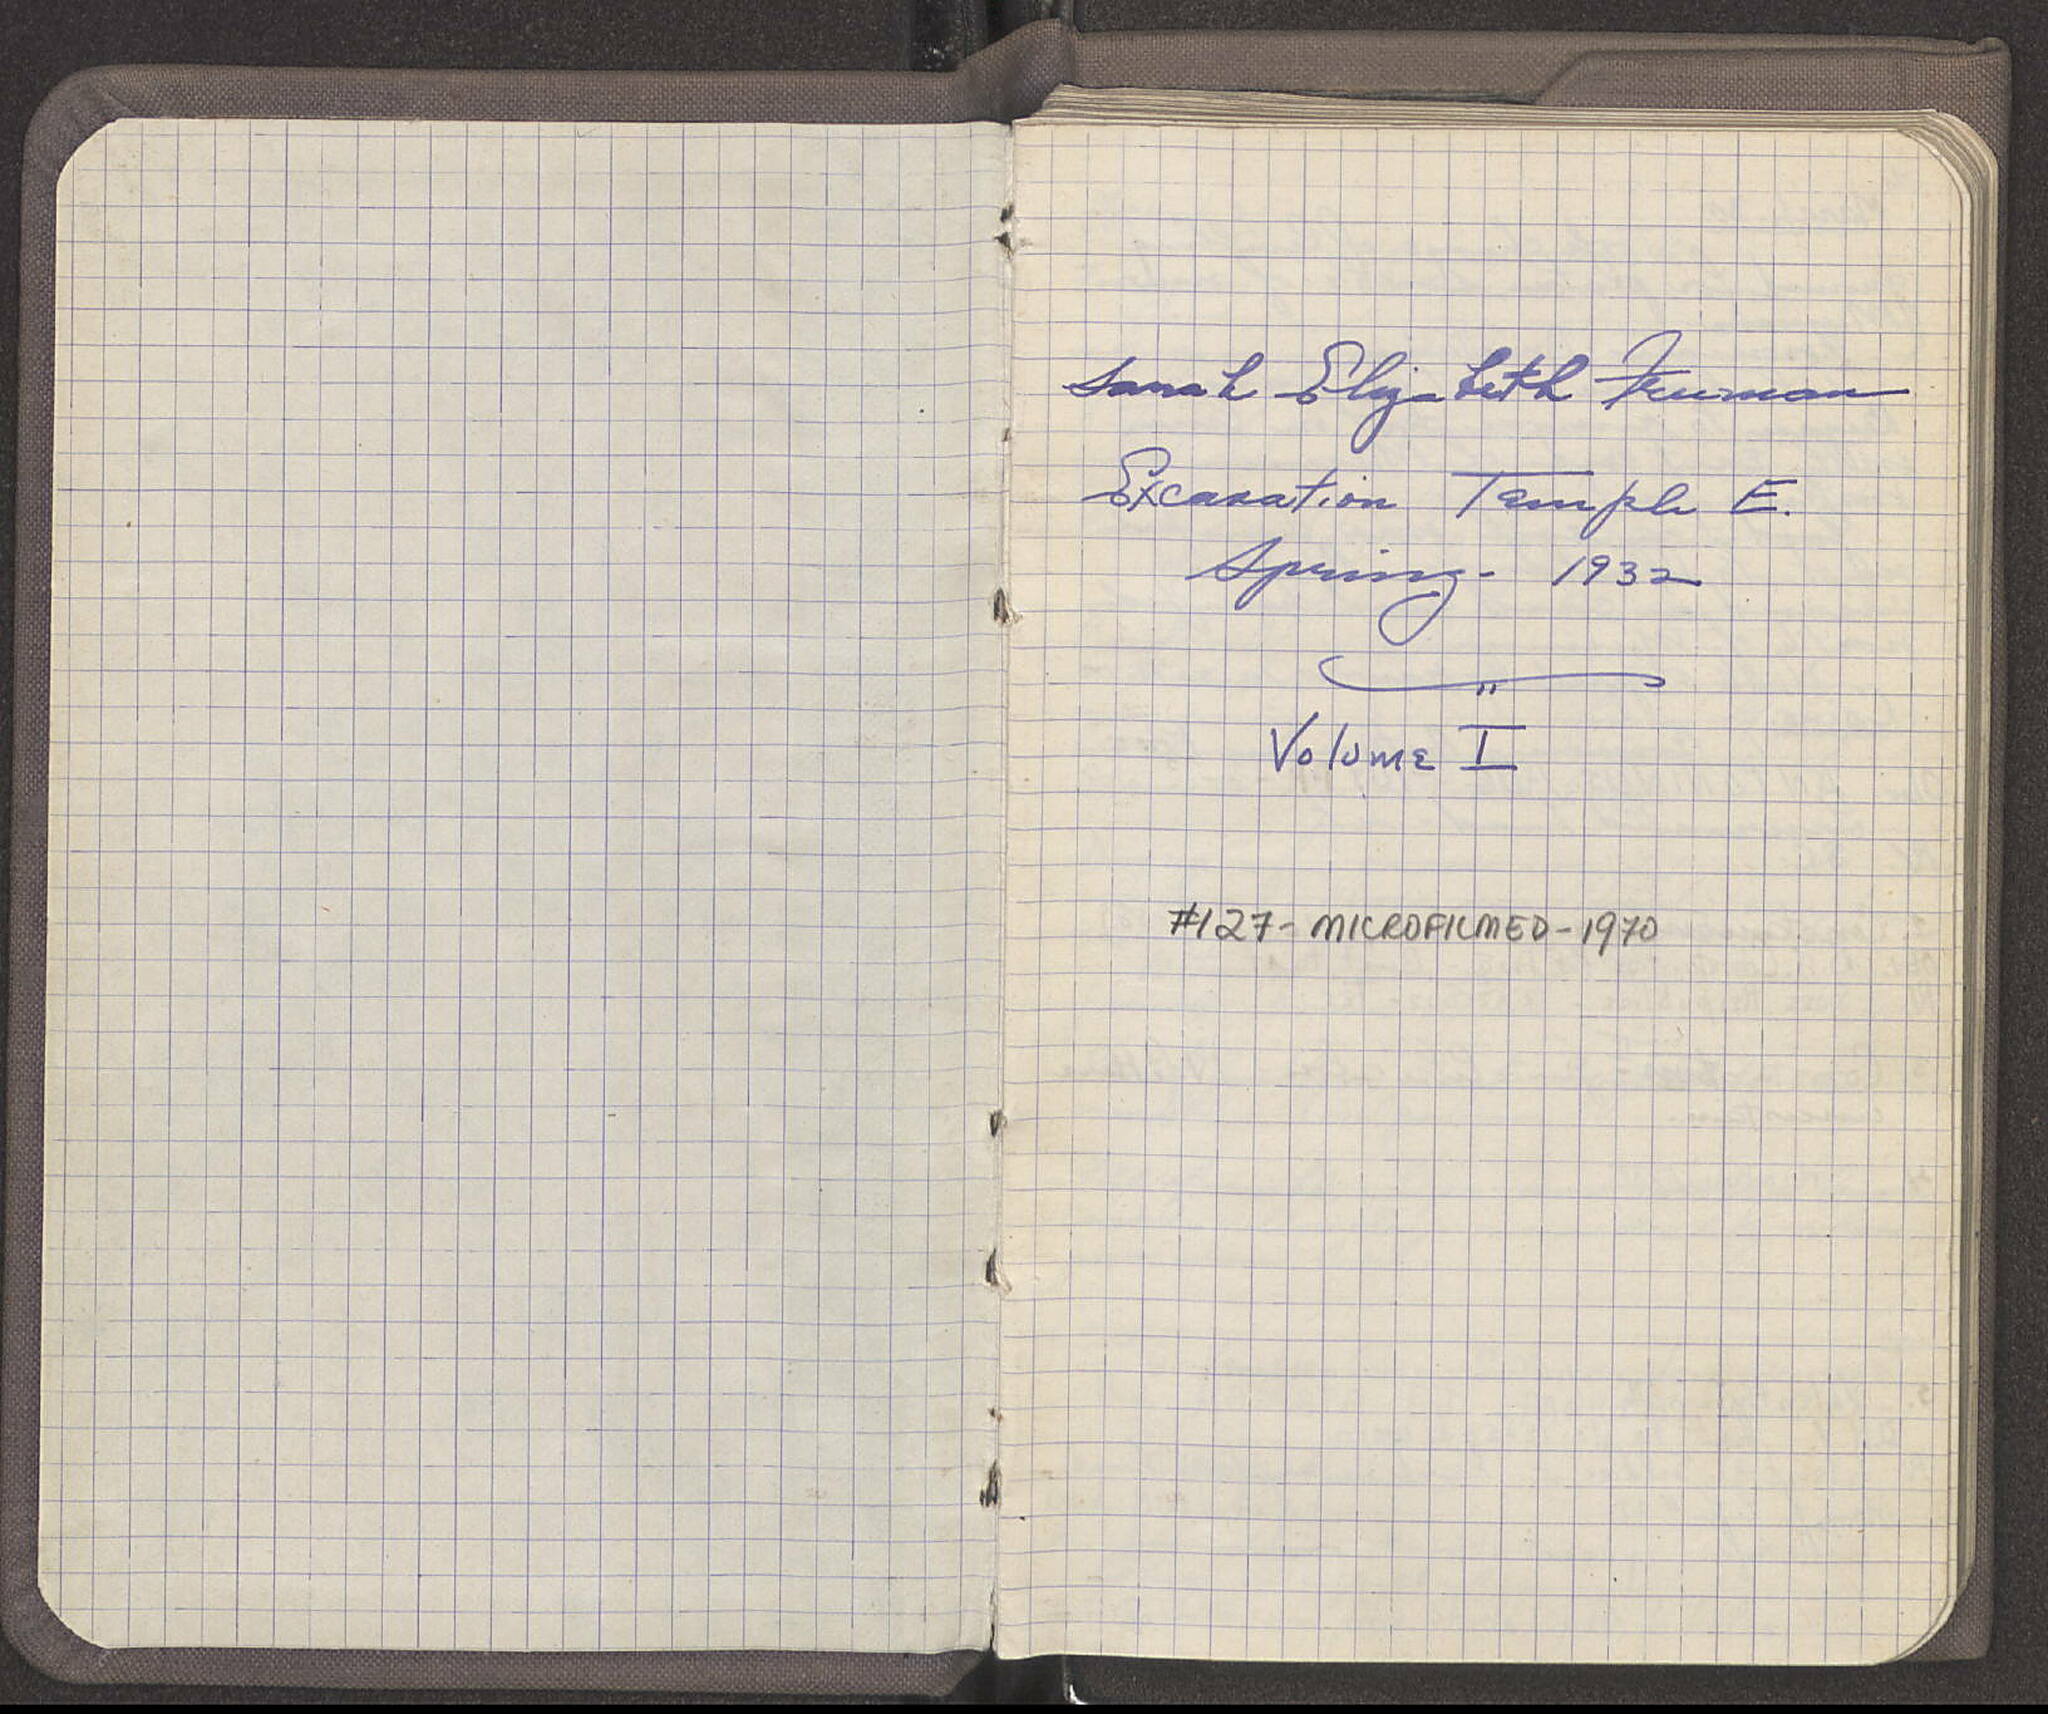 Sarah Elizabeth Freeman
Excavation Temple E.
Spring - 1932
Volume I
#127 - MICROFILMED - 1970